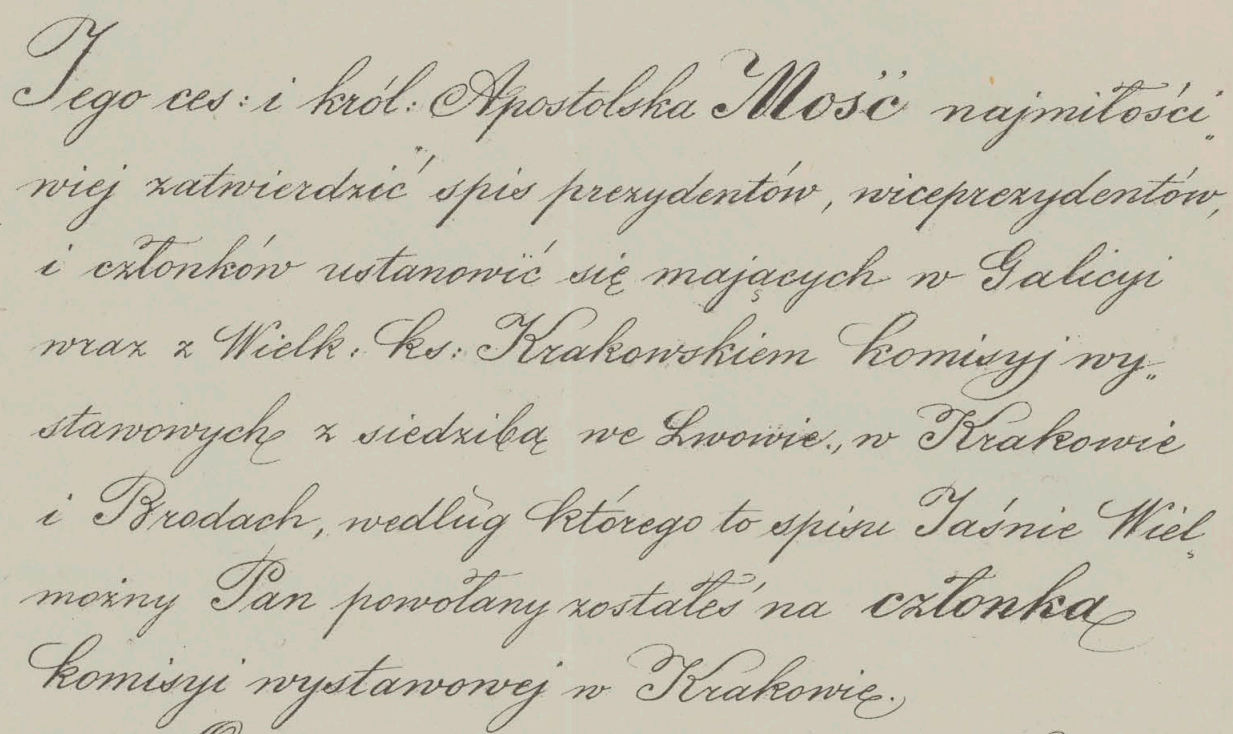 Jego ces: i król: Apostolska Mość najmiłości„
wiej zatwierdzić spis prezydentów, wiceprezydentów,
i członków ustanowić się mających w Galicyi
wraz z Wielk: ks: Krakowskiem komisyj wy„
stawowych z siedzibą we Lwowie, w Krakowie
i Brodach, według którego to spisu Jaśnie Wiel„
możny Pan powołany zostałeś na członka
komisyi wystawowej w Krakowie.